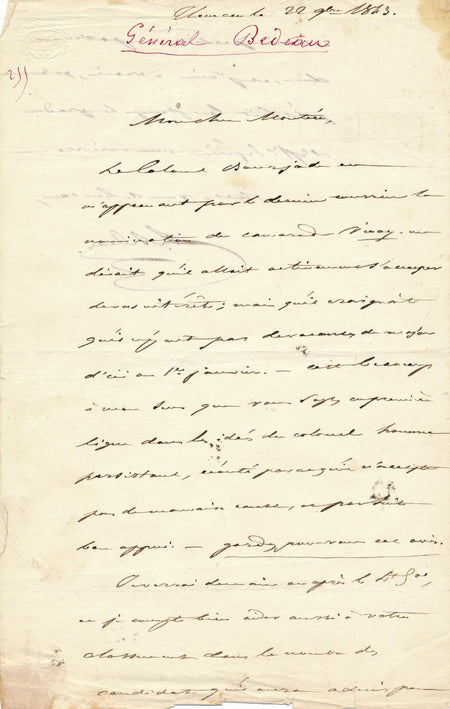 Tlemcen le 22 9bre 1843.
Général Bedeau
255
Mon cher Montées,
Le Colonel en
m'apprenant par le dernier courrier la
nomination de camarade Vinoy me
disait qu'il allait activement s'occuper
de vos intérêts; mais qu'il craignait
qu'il n'y eut pas de vacances de major
d'ici au 1er janvier. — c'est beaucoup
à mon sens que vous soyez en première
ligne dans les idées du colonel homme
persistant, écouté parce qu'il n'accepte
pas de mauvaise cause, et par suite
bon appui. — gardez pour vous cet avis.
Je verrai demain ou après le Gal,
et je compte bien aider aussi à votre
classement dans le nombre des
candidats qu'il aura admis pour